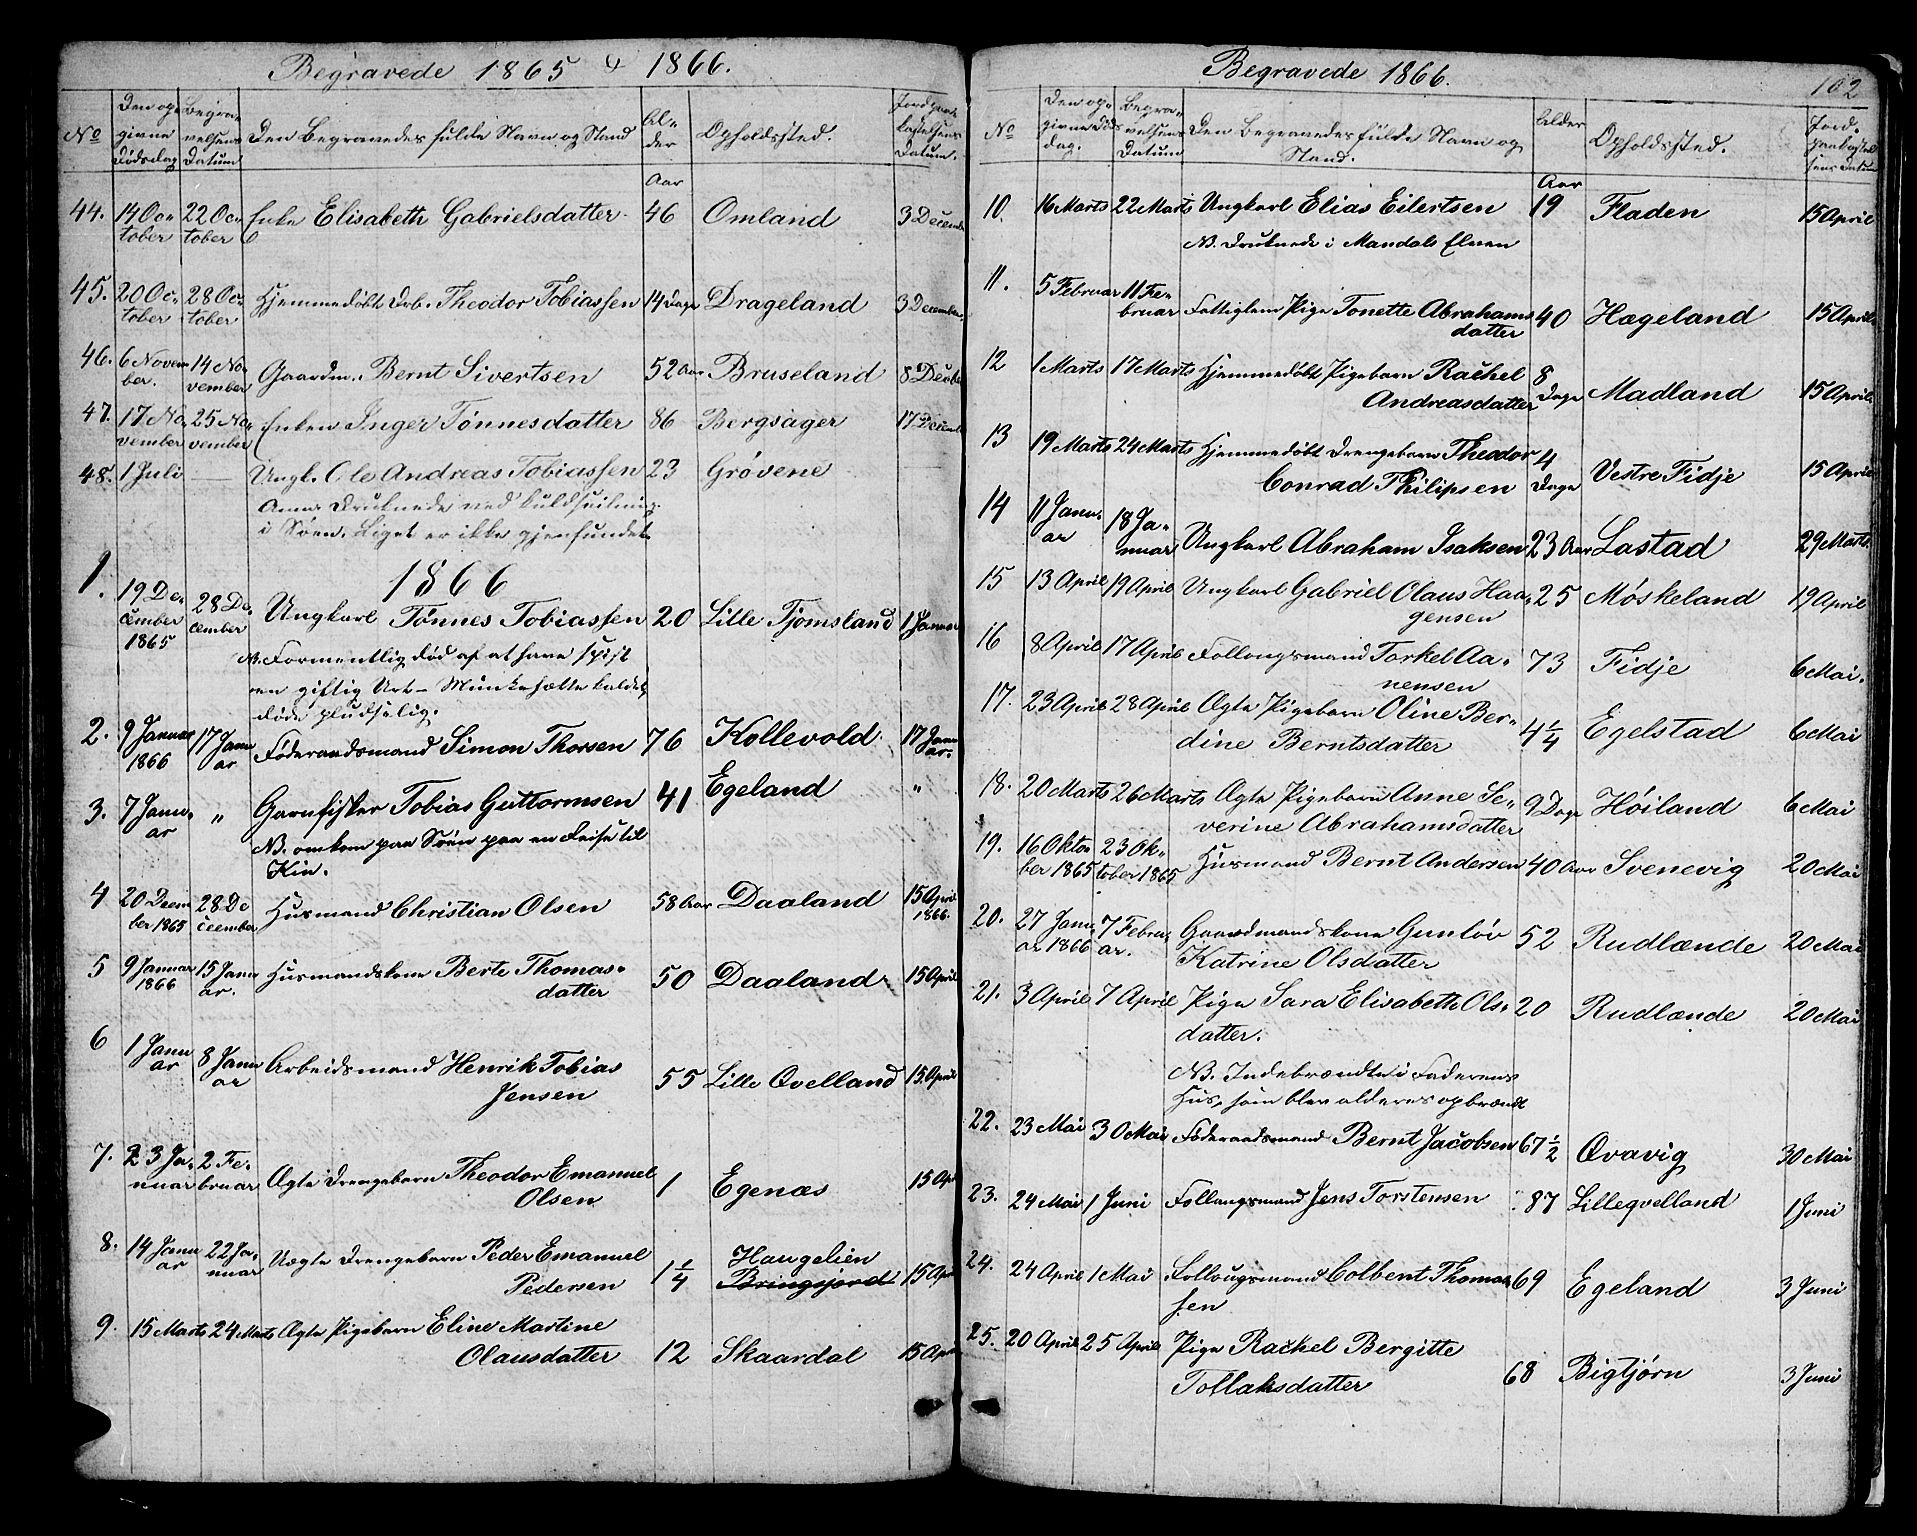 Begravede 1865 & 1866.
No
Den opgivne Dødsdag
Begravelsens Datum
Den Begravedes fulde Navn og Stand
Alder
Opholdssted.
Jordpaakastelsens Datum.
Aar
44. 14 October 22 October Enke Elisabeth Gabrielsdatter 46 Omland 3 Decembe
45. 20 October 28 October Hjemmedøbt Drb. Theodor Tobiassen 14 Dage Drageland 3 December
46. 6 November. 14 November Gaardm. Bernt Sivertsen 52 Aar Bruseland 8 Decbr
47. 17 November 25 November Enken Inger Tønnesdatter 86 Bergsager 17 Decemb
48. 1 Juli — Ungk. Ole Andreas Tobiassen 23 Grövene —
Anm. Druknede ved Kuldseiling
i Søen. Liget er ikke gjenfundet
1866
1. 19 December 1865 28 December Ungkarl Tønnes Tobiassen 20 Lille Tjomsland 1 Januar
NB. Formentlig død af at have spist
en giftig Urt – Munkehætte kaldet,
døde pludselig.
2. 9 Januar 1866 17 Januar Føderaadsmand Simon Thorsen 76 Kollevold 17 Januar.
3. 7 Januar " Garnfisker Tobias Guttormsen 41 Egeland "
NB. omkom paa Søen paa en Reise til
Kin.
4 20 December 1865 28 December Husmand Christian Olsen 58 Aar Daaland 15 April 1866.
5 9 Januar 1866 15 Januar. Husmandskone Berte Thomasdatter 50 Daaland 15 April
6 1 Januar 8 Januar Arbeidsmand Henrik Tobias Jensen 55 Lille Qvelland 15 April
7. 23 Januar 2 Februar Ægte Drengebarn Theodor Emanuel Olsen 1 Egenæs 15 Apr
8. 14 Januar 22 Januar Uægte Drengebarn Peder Emanuel Pedersen 1 1/4 Haugelien Bringsjord 15 Apr
9. 15 Marts 24 Marts Ægte Pigebarn Eline Martine Olausdatter 12 Skaardal 15 Apri
Begravede 1866.
102
No
Den opgivne Dødsdag.
Begravelsens Datum
Den Begravedes fulde Navn og Stand.
Alder
Opholdssted.
Jordpaakastelsens Datum
Aar
10. 16 Marts 22 Marts Ungkarl Elias Eilertsen 19 Fladen 15 April
NB. Druknede i Mandals Elven
11. 5 Februar 11 Februar Fattiglem Pige Tonette Abrahamsdatter 40 Hægeland 15 April
12 1 Marts 17 Marts Hjemmedøbt Pigebarn Rachel Andreasdatter 8 Dage Madland 15 April
13 19 Marts 24 Marts Hjemmedøbt Drengebarn Theodor Conrad Philipsen 4 Dage Vestre Fidje 15 April
14 11 Januar 18 Januar Ungkarl Abraham Isaksen 23 Aar Lastad 29 Marts
15 13 April 19 April Ungkarl Gabriel Olaus Haagensen 25 Møskeland 19 April
16 8 April 17 April Follougsmand Torkel Aanensen 73 Fidje 6 Mai.
17. 23 April 28 April Ægte Pigebarn Oline Berdine Berntsdatter 4 1/4 Egelstad 6 Mai
18. 20 Marts 26 Marts Ægte Pigebarn Anne Severine Abrahamsdatter 9 Dage Høiland 6 Mai
19. 16 Oktober 1865 23 Oktober 1865 Husmand Bernt Andersen 40 Aar Svenevig 20 Mai
20. 27 Januar 1866 7 Februar. Gaardmandskone Gunløv Katrine Olsdatter 52 Rudlænde 20 Mai
21. 3 April 7 April Pige Sara Elisabeth Olsdatter. 20 Rudlænde 20 Mai
NB. Indebrændte i Faderens
Hus, som blev aldeles opbrændt
22. 23 Mai 30 Mai Føderaadsmand Bernt Jacobsen 67 1/2 Qvavig 30 Mai
23. 24 Mai 1 Juni Follougsmand Jens Torstensen 87 Lilleqvelland 1 Juni
24. 24 April 1 Mai Follougsmand Colbent Thomassen 69 Egeland 3 Juni
25. 20 April 25 April Pige Rachel Bergitte Tollaksdatter 68 Bigtjørn 3 Juni